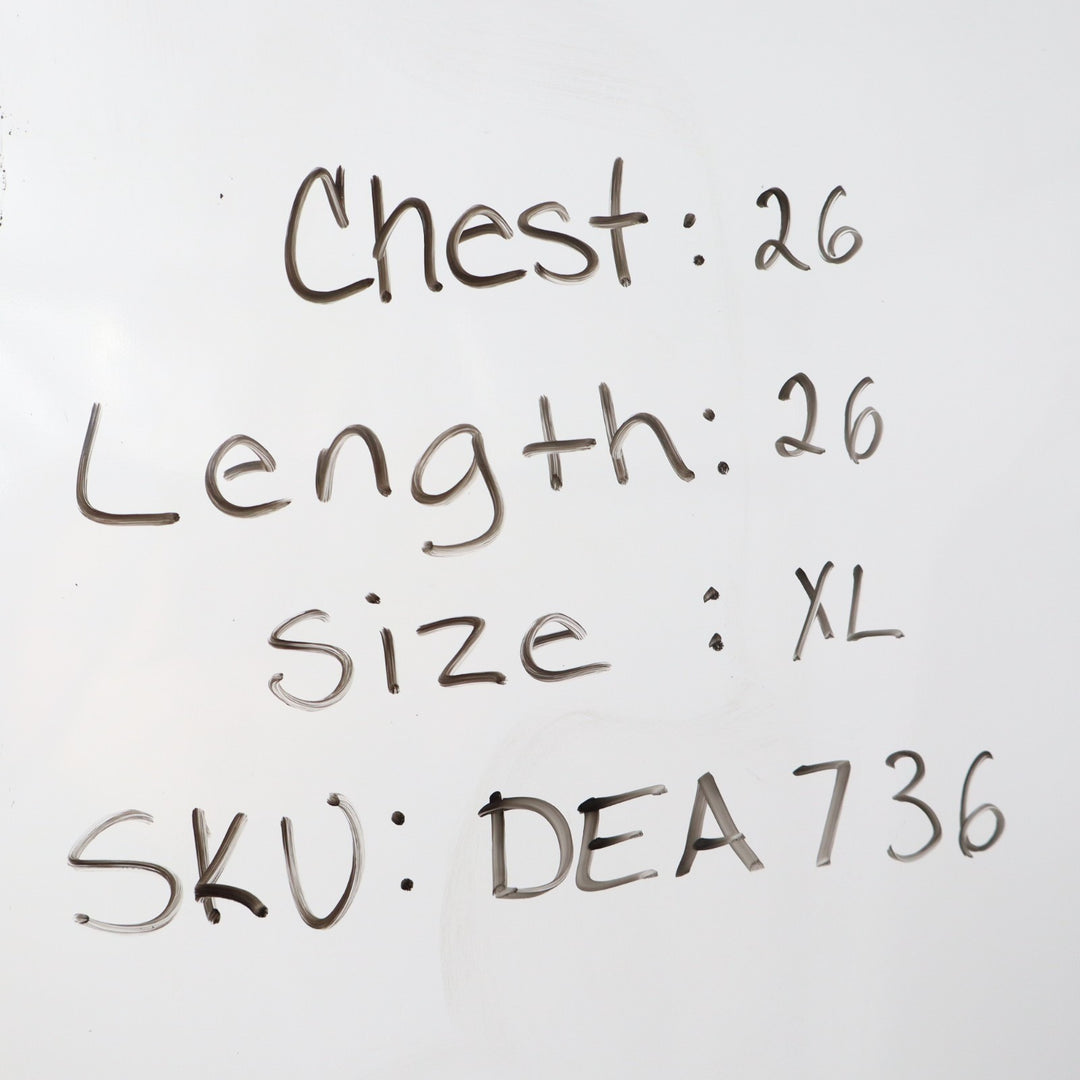 Chest: 26
Length: 26
Size : XL
SKU: DEA 736